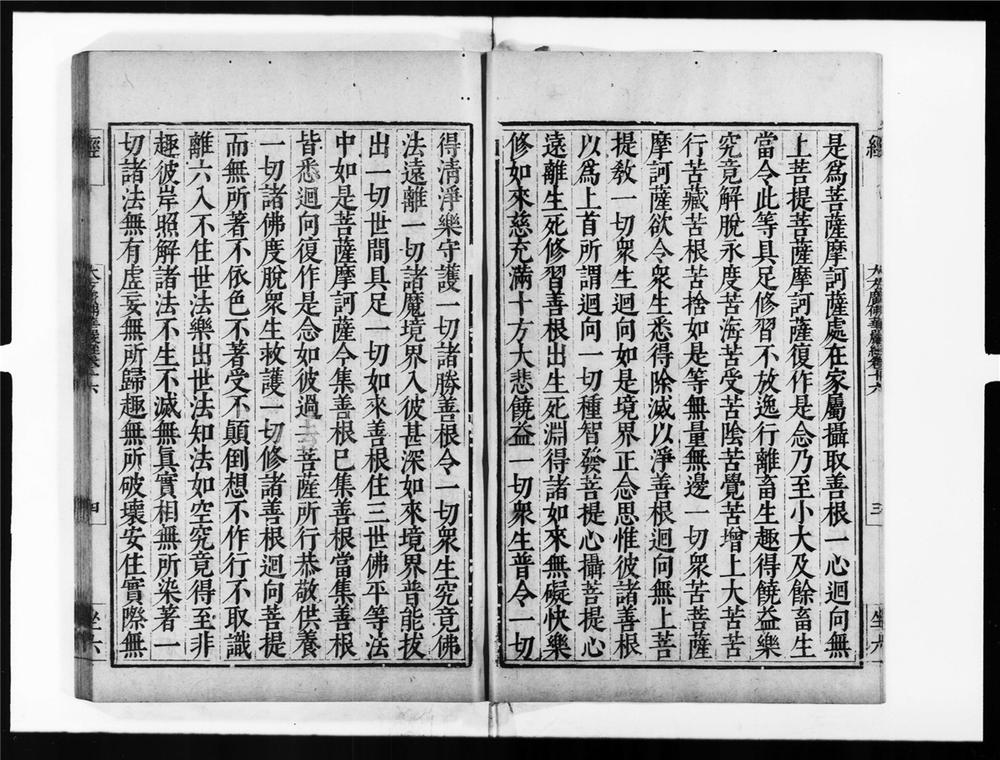 是為菩薩摩訶薩處在家屬攝取善根一心迴向無
上菩提菩薩摩訶薩復作是念乃至小大及餘畜生
當令此等具足修習不放逸行離畜生趣得饒益樂
究竟解脫永度苦海苦受苦陰苦覺苦增上大苦苦
行苦藏苦根苦捨如是等無量無邊一切衆苦菩薩
摩訶薩欲令衆生悉得除滅以淨善根迴向無上菩
提教一切衆生迴向如是境界正念思惟彼諸善根
以為上首所謂迴向一切種智發菩提心攝菩提心
遠離生死修習善根出生死淵得諸如來無礙快樂
修如來慈充滿十方大悲饒益一切衆生普令一切
經
大方廣佛華嚴經卷十六
三
坐六
得清淨樂守護一切諸勝善根令一切衆生究竟佛
法遠離一切諸魔境界入彼甚深如來境界普能拔
出一切世間具足一切如來善根住三世佛平等法
中如是菩薩摩訶薩今集善根已集善根當集善根
皆悉迴向復作是念如彼過去菩薩所行恭敬供養
一切諸佛度脫衆生救護一切修諸善根迴向菩提
而無所著不依色不著受不顛倒想不作行不取識
離六入不住世法樂出世法知法如空究竟得至非
趣彼岸照解諸法不生不滅無眞實相無所染著一
切諸法無有虛妄無所歸趣無所破壞安住實際無
經
大方廣佛華嚴經卷十六
四
坐六